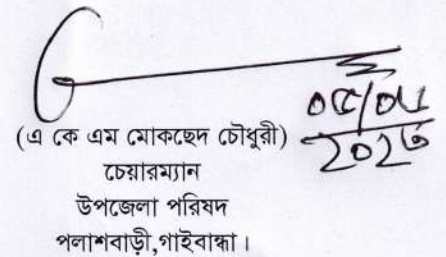 (এ কে এম মোকছেদ চৌধুরী)
চেয়ারম্যান
উপজেলা পরিষদ
পলাশবাড়ী,গাইবান্ধা।